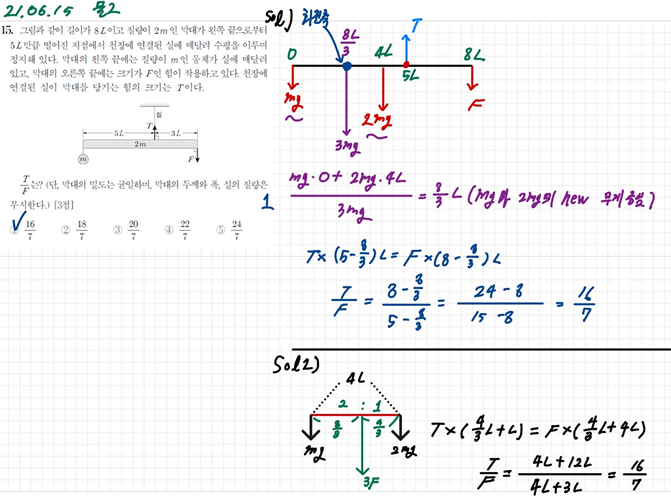 21.06.15 물2
15. 그림과 같이 길이가 8L이고 질량이 2m인 막대가 왼쪽 끝으로부터
5L만큼 떨어진 지점에서 천장에 연결된 실에 매달려 수평을 이루며
정지해 있다. 막대의 왼쪽 끝에는 질량이 m인 물체가 실에 매달려
있고, 막대의 오른쪽 끝에는 크기가 F인 힘이 작용하고 있다. 천장에
연결된 실이 막대를 당기는 힘의 크기는 T이다.
실
5L T 3L
2m
m F
T/F는? (단, 막대의 밀도는 균일하며, 막대의 두께와 폭, 실의 질량은
무시한다.) [3점]
① 16/7 ② 18/7 ③ 20/7 ④ 22/7 ⑤ 24/7
sol) 회전축
T
0 8L/3 4L 5L 8L
mg 2mg F
3mg
1
mg·0 + 2mg·4L / 3mg = 8/3 L (mg와 2mg의 new 무게중심)
T×(5-8/3)L = F×(8-8/3)L
T/F = 8-8/3 / 5-8/3 = 24-8 / 15-8 = 16/7
Sol2)
4L
2 : 1
8/3 4/3
mg 2mg
3F
T×(4/3L+L) = F×(4/3L+4L)
T/F = 4L+12L / 4L+3L = 16/7